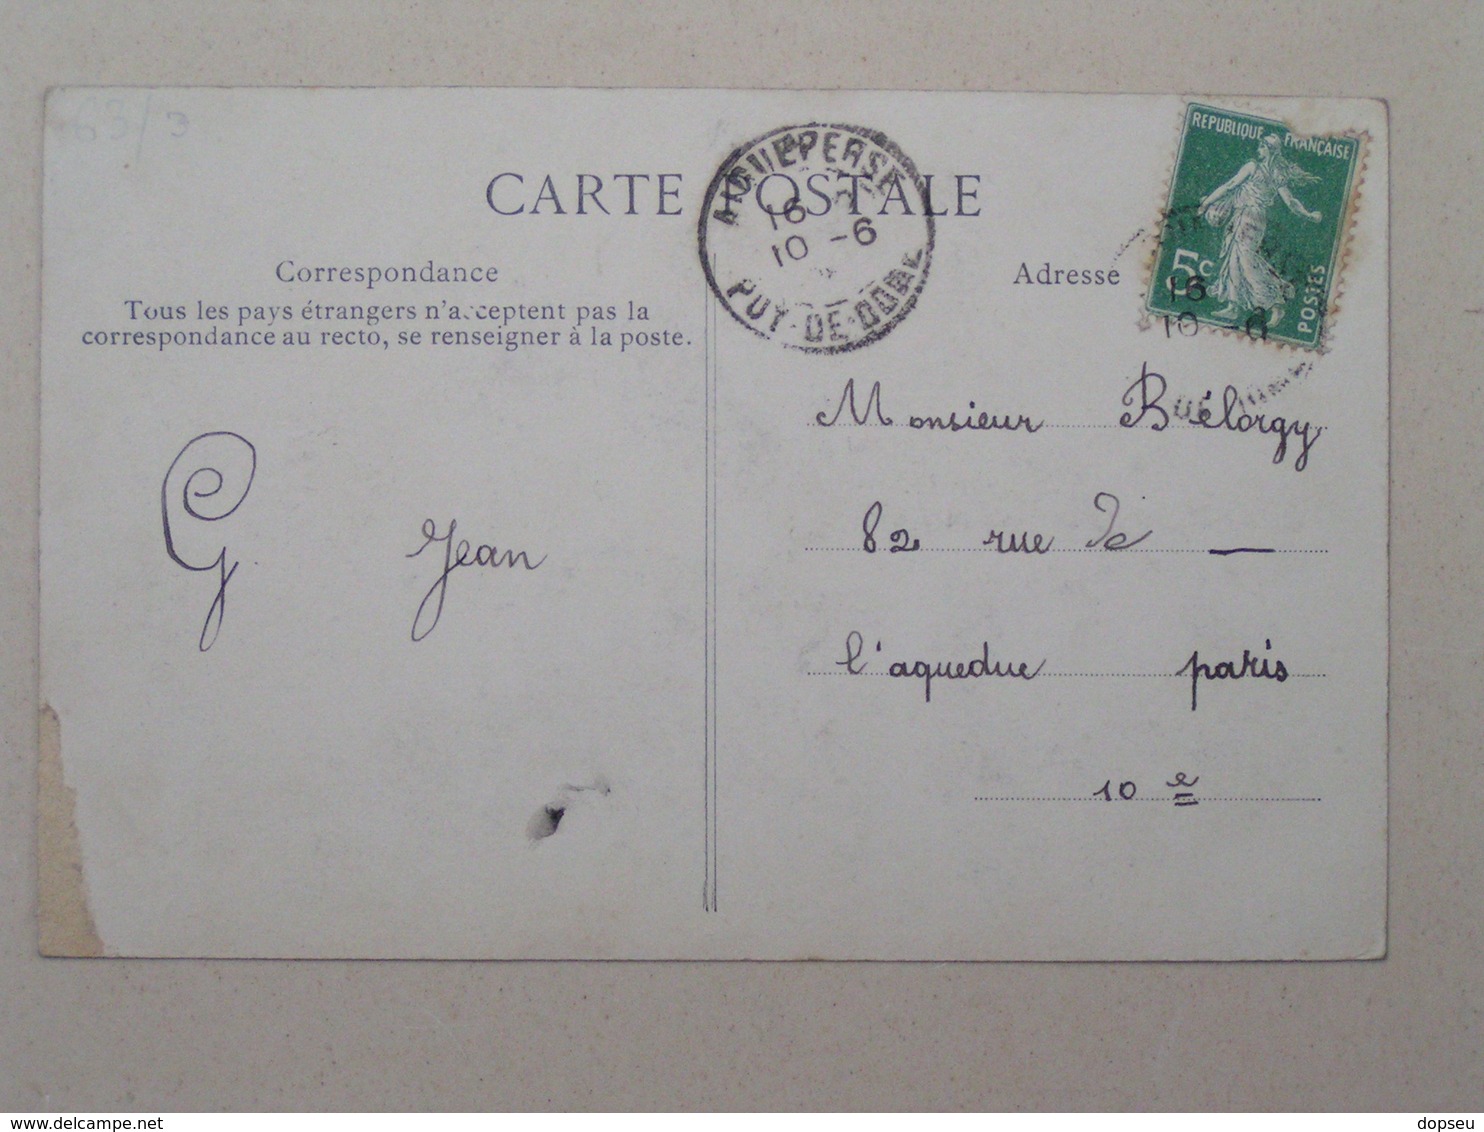 63/3
CARTE POSTALE
AIGUEPERSE
16
10 -6
PUY-DE-DOME
REPUBLIQUE FRANÇAISE
5c
POSTES
16
10 -6
Correspondance
Tous les pays étrangers n'acceptent pas la
correspondance au recto, se renseigner à la poste.
Adresse
G Jean
Monsieur Bélorgy
82 rue de —
l'aqueduc paris
10 e
delcampe.net
dopseu